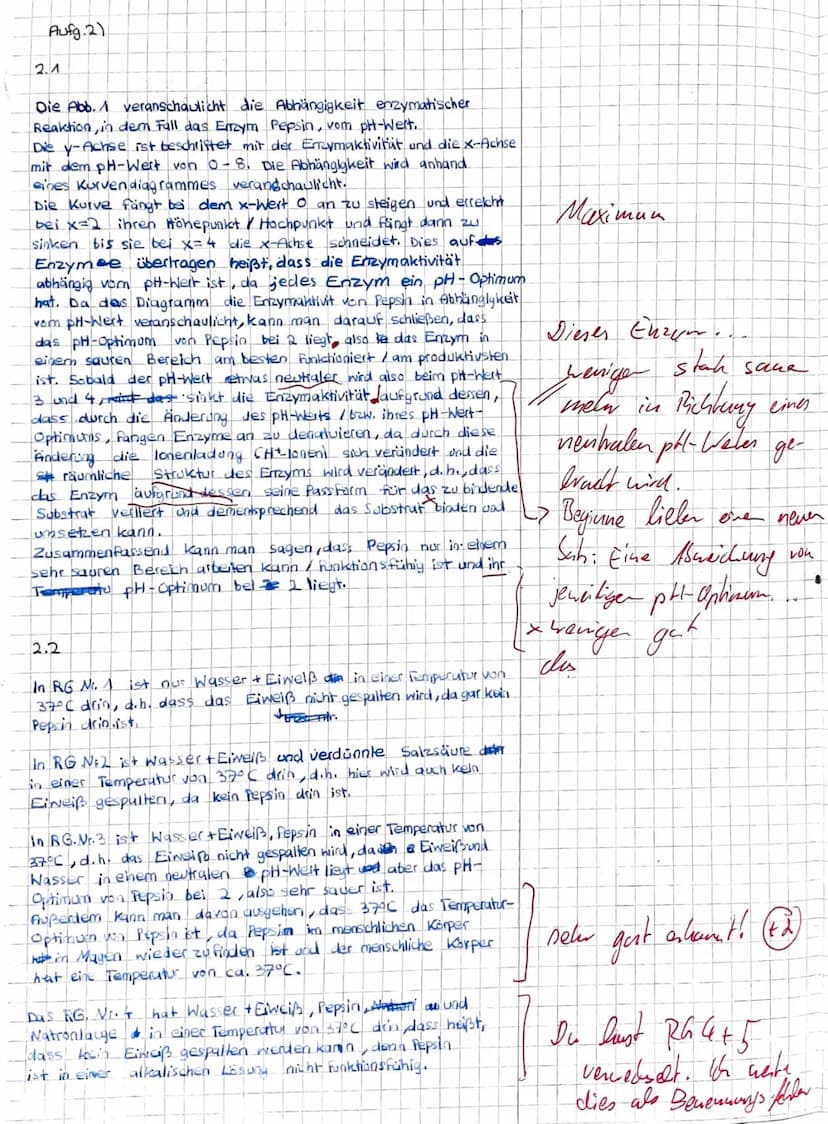 Aufg. 2)
2.1
Die Abb. 1 veranschaulicht die Abhängigkeit enzymatischer
Reaktion, in dem Fall das Enzym Pepsin, vom pH-Wert.
Die y-Achse ist beschriftet mit der Enzymaktivität und die x-Achse
mit dem pH-Wert von 0-8. Die Abhängigkeit wird anhand
eines Kurvendiagrammes veranschaulicht.
Die Kurve fängt bei dem x-Wert 0 an zu steigen und erreicht
bei x=2 ihren Höhepunkt / Hochpunkt und fängt dann zu
sinken bis sie bei x=4 die x-Achse schneidet. Dies auf
Enzyme übertragen heißt, dass die Enzymaktivität
abhängig vom pH-Wert ist, da jedes Enzym ein pH-Optimum
hat. Da das Diagramm die Enzymaktivit von Pepsin in Abhängigkeit
vom pH-Wert veranschaulicht, kann man darauf schließen, dass
das pH-Optimum von Pepsin bei 2 liegt, also das Enzym in
einem sauren Bereich am besten funktioniert / am produktivsten
ist. Sobald der pH-Wert etwas neutraler wird also beim pH-Wert
3 und 4, sinkt die Enzymaktivität aufgrund dessen,
dass durch die Änderung des pH-Werts / bzw. ihres pH-Wert-
Optimums, fangen Enzyme an zu denaturieren, da durch diese
Änderung die Ionenladung (H⁺-Ionen) sich verändert und die
räumliche Struktur des Enzyms wird verändert, d.h., dass
das Enzym aufgrund dessen seine Passform für das zu bindende
Substrat verliert und dementsprechend das Substrat binden und
umsetzen kann.
Zusammenfassend kann man sagen, dass Pepsin nur in einem
sehr sauren Bereich arbeiten kann / funktionsfähig ist und ihr
pH-Optimum bei 2 liegt.
Maximum
Dieses Enzym...
weniger stark sauer
mehr in Richtung eines
neutralen pH-Wertes ge-
bracht wird.
Beginne lieber einen neuen
Satz: Eine Abweichung vom
jeweiligen pH-Optimum...
x weniger gut
das
2.2
In RG Nr. 1 ist nur Wasser + Eiweiß in einer Temperatur von
37°C drin, d.h. dass das Eiweiß nicht gespalten wird, da gar kein
Pepsin drin ist.
In RG Nr.2 ist Wasser + Eiweiß und verdünnte Salzsäure
in einer Temperatur von 37°C drin, d.h. hier wird auch kein
Eiweiß gespalten, da kein Pepsin drin ist.
In RG.Nr.3 ist Wasser + Eiweiß, Pepsin in einer Temperatur von
37°C, d.h. das Eiweiß nicht gespalten wird, da Eiweiß und
Wasser in einem neutralen pH-Wert liegt aber das pH-
Optimum von Pepsin bei 2, also sehr sauer ist.
Außerdem kann man davon ausgehen, dass 37°C das Temperatur-
Optimum von Pepsin ist, da Pepsin im menschlichen Körper
in Magen wieder zu finden ist und der menschliche Körper
hat eine Temperatur von ca. 37°C.
sehr gut erkannt! (+2)
Das RG. Nr. 4 hat Wasser + Eiweiß, Pepsin, und
Natronlauge in einer Temperatur von 37°C drin, dass heißt,
dass kein Eiweiß gespalten werden kann, denn Pepsin
ist in einer alkalischen Lösung nicht funktionsfähig.
Du hast RG 4+5
verwechselt. Ich werte
dies als Benennungsfehler